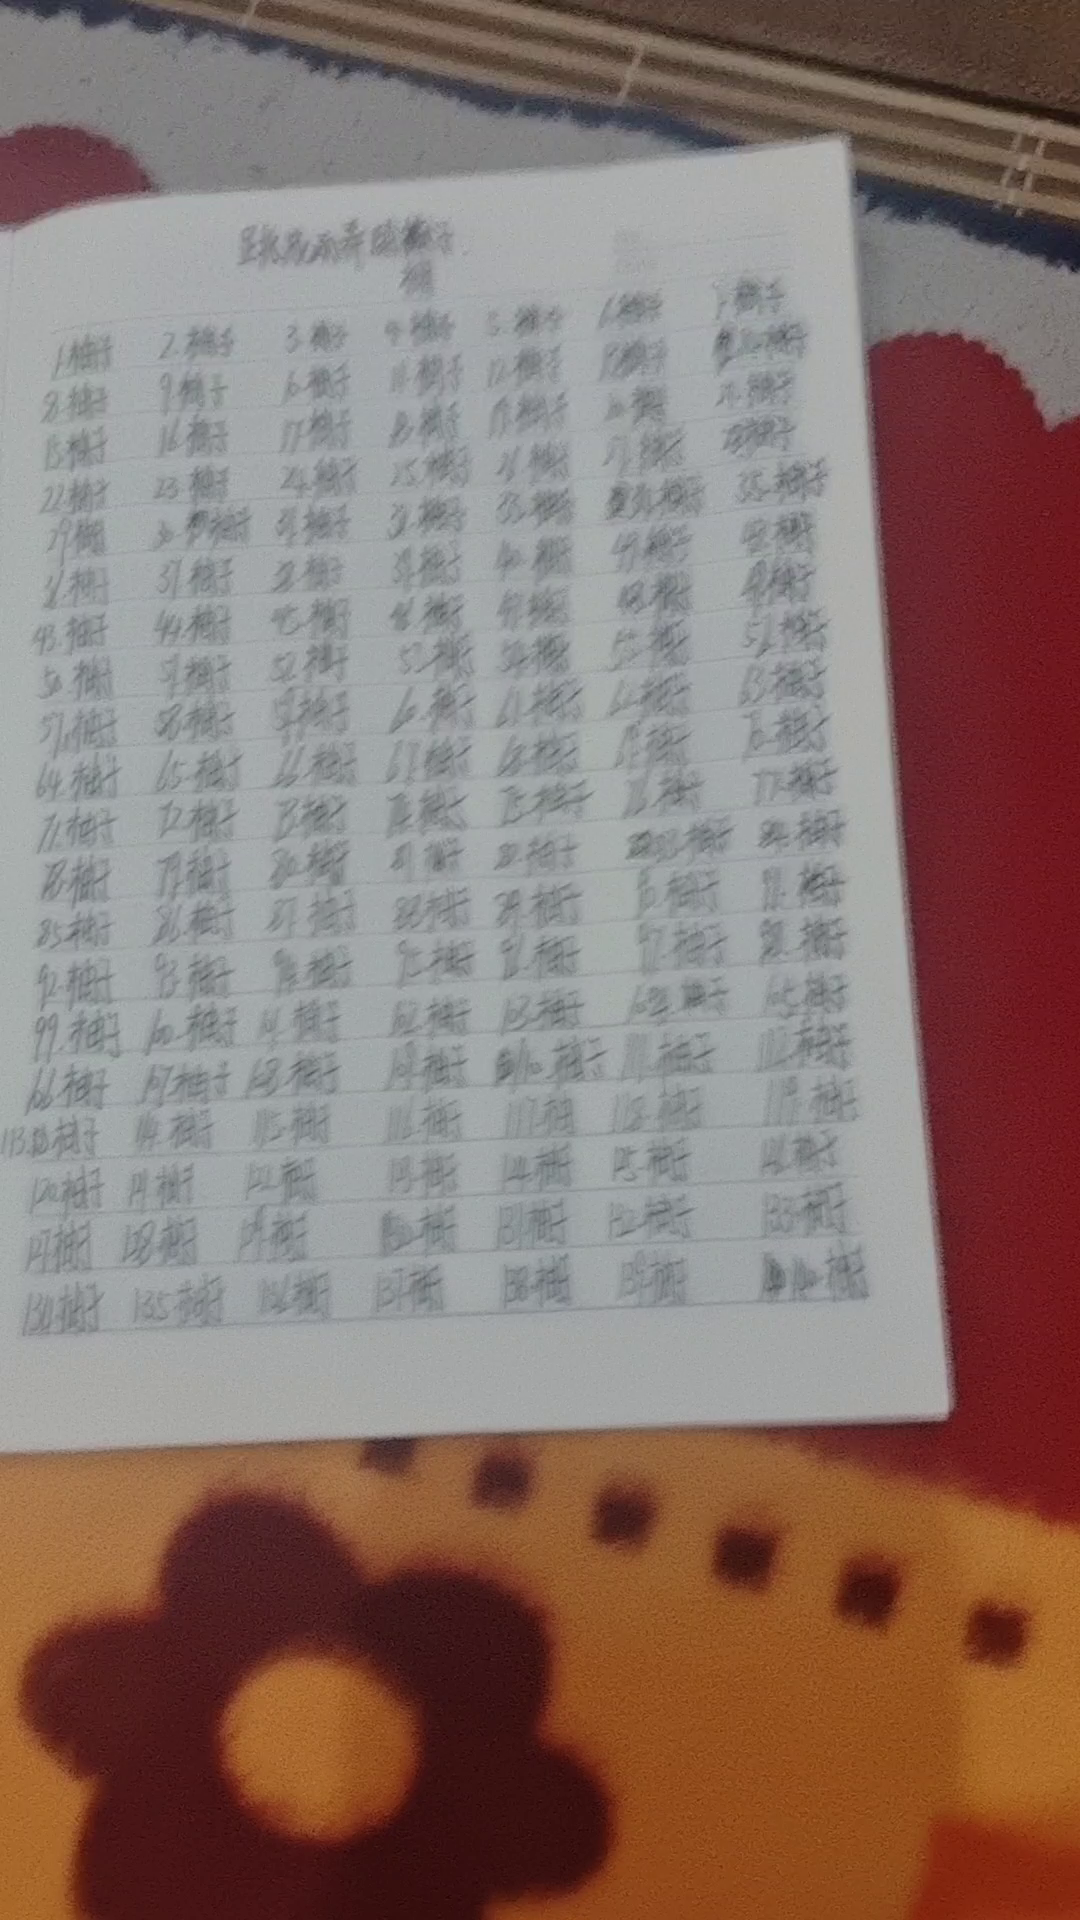 1.柚子 2.柚子 3.柚子 4.柚子 5.柚子 6.柚子 7.柚子
8.柚子 9.柚子 10.柚子 11.柚子 12.柚子 13.柚子 柚子
15.柚子 16.柚子 17.柚子 18.柚子 19.柚子 20.柚子 21.柚子
22.柚子 23.柚子 24.柚子 25.柚子 26.柚子 27.柚子 28.柚子
29.柚子 30.柚子 31.柚子 32.柚子 33.柚子 34.柚子 35.柚子
36.柚子 37.柚子 38.柚子 39.柚子 40.柚子 柚子 42.柚子
43.柚子 44.柚子 45.柚子 46.柚子 47.柚子 48.柚子 49.柚子
50.柚子 51.柚子 52.柚子 53.柚子 54.柚子 55.柚子 56.柚子
57.柚子 58.柚子 59.柚子 60.柚子 61.柚子 62.柚子 63.柚子
64.柚子 65.柚子 66.柚子 67.柚子 68.柚子 69.柚子 70.柚子
71.柚子 72.柚子 73.柚子 74.柚子 75.柚子 76.柚子 77.柚子
78.柚子 79.柚子 80.柚子 81.柚子 82.柚子 83.柚子 84.柚子
85.柚子 86.柚子 87.柚子 88.柚子 89.柚子 90.柚子 91.柚子
92.柚子 93.柚子 94.柚子 95.柚子 96.柚子 97.柚子 98.柚子
99.柚子 100.柚子 101.柚子 102.柚子 103.柚子 104.柚子 105.柚子
106.柚子 107.柚子 108.柚子 109.柚子 110.柚子 111.柚子 112.柚子
113.柚子 114.柚子 115.柚子 116.柚子 117.柚子 118.柚子 119.柚子
120.柚子 121.柚子 122.柚子 123.柚子 124.柚子 125.柚子 126.柚子
127.柚子 128.柚子 129.柚子 130.柚子 131.柚子 132.柚子 133.柚子
134.柚子 135.柚子 136.柚子 137.柚子 138.柚子 139.柚子 140.柚子